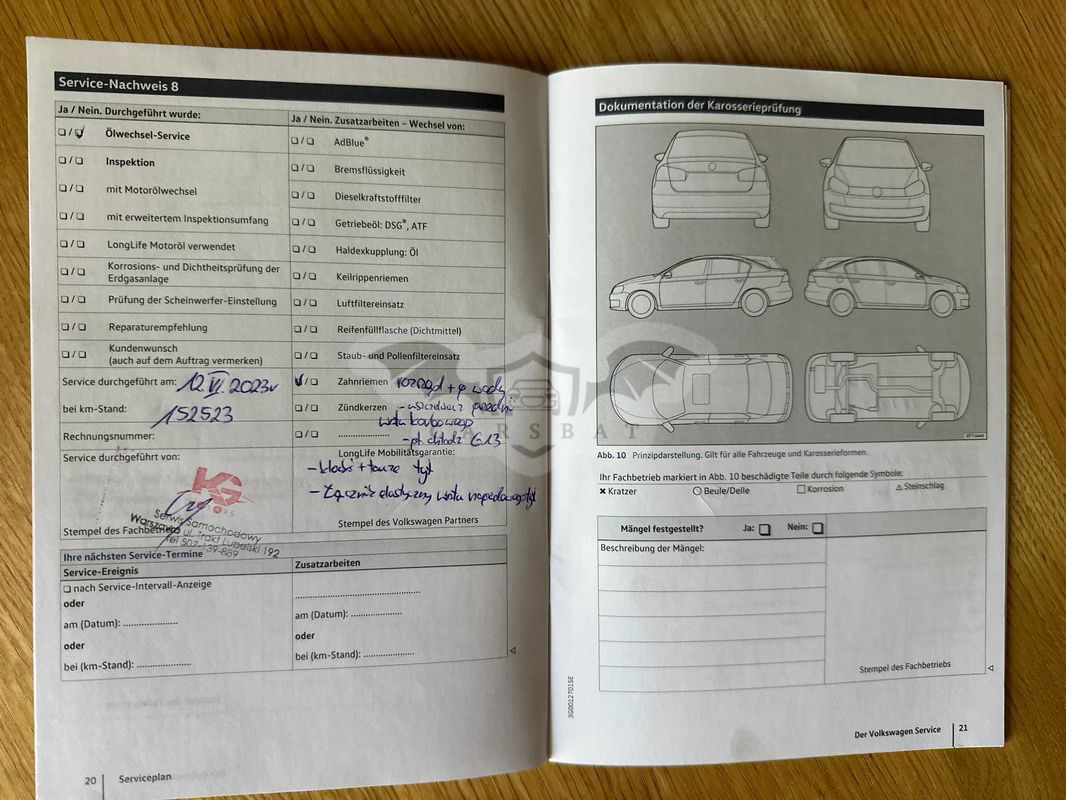 Service-Nachweis 8
Ja / Nein. Durchgeführt wurde:
Ölwechsel-Service
Inspektion
mit Motorölwechsel
mit erweitertem Inspektionsumfang
LongLife Motoröl verwendet
Korrosions- und Dichtheitsprüfung der
Erdgasanlage
Prüfung der Scheinwerfer-Einstellung
Reparaturempfehlung
Kundenwunsch
(auch auf dem Auftrag vermerken)
Service durchgeführt am: 12.VI.2023r
bei km-Stand: 152523
Rechnungsnummer:
Service durchgeführt von:
KG
Serwis Samochodowy
Warszawa ul. Trakt Lubelski 192
Tel 507-139-889
Stempel des Fachbetriebs
Ja / Nein. Zusatzarbeiten – Wechsel von:
AdBlue®
Bremsflüssigkeit
Dieselkraftstofffilter
Getriebeöl: DSG®, ATF
Haldexkupplung: Öl
Keilrippenriemen
Luftfiltereinsatz
Reifenfüllflasche (Dichtmittel)
Staub- und Pollenfiltereinsatz
Zahnriemen rozrząd + p wody
Zündkerzen
G13
LongLife Mobilitätsgarantie:
- klocki + tarcze tył
- Łącznik elastyczny
Stempel des Volkswagen Partners
Ihre nächsten Service-Termine
Service-Ereignis
nach Service-Intervall-Anzeige
oder
am (Datum): ....................
oder
bei (km-Stand): ....................
Zusatzarbeiten
am (Datum): ....................
oder
bei (km-Stand): ....................
20 Serviceplan
Dokumentation der Karosserieprüfung
Abb. 10 Prinzipdarstellung. Gilt für alle Fahrzeuge und Karosserieformen.
Ihr Fachbetrieb markiert in Abb. 10 beschädigte Teile durch folgende Symbole:
Kratzer Beule/Delle Korrosion Steinschlag
Mängel festgestellt? Ja: Nein:
Beschreibung der Mängel:
Stempel des Fachbetriebs
3G0012701SE
Der Volkswagen Service 21
CARSBAT